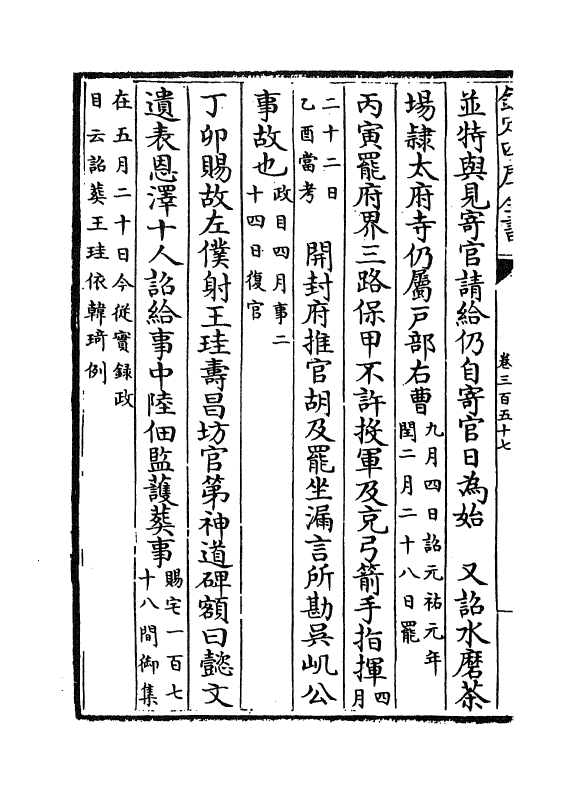 欽定四庫全書
卷三百五十七
並特與見寄官請給仍自寄官日為始　又詔水磨茶
場隸太府寺仍屬戸部右曹九月四日詔元祐元年
閏二月二十八日罷
丙寅罷府界三路保甲不許投軍及充弓箭手指揮四月
二十二日
乙酉當考　開封府推官胡及罷坐漏言所勘吳屼公
事故也政目四月事二
十四日復官
丁卯賜故左僕射王珪壽昌坊官第神道碑額曰懿文
遺表恩澤十人詔給事中陸佃監䕶葬事賜宅一百七
十八間御集
在五月二十日今從實録政
目云詔葬王珪依韓琦例